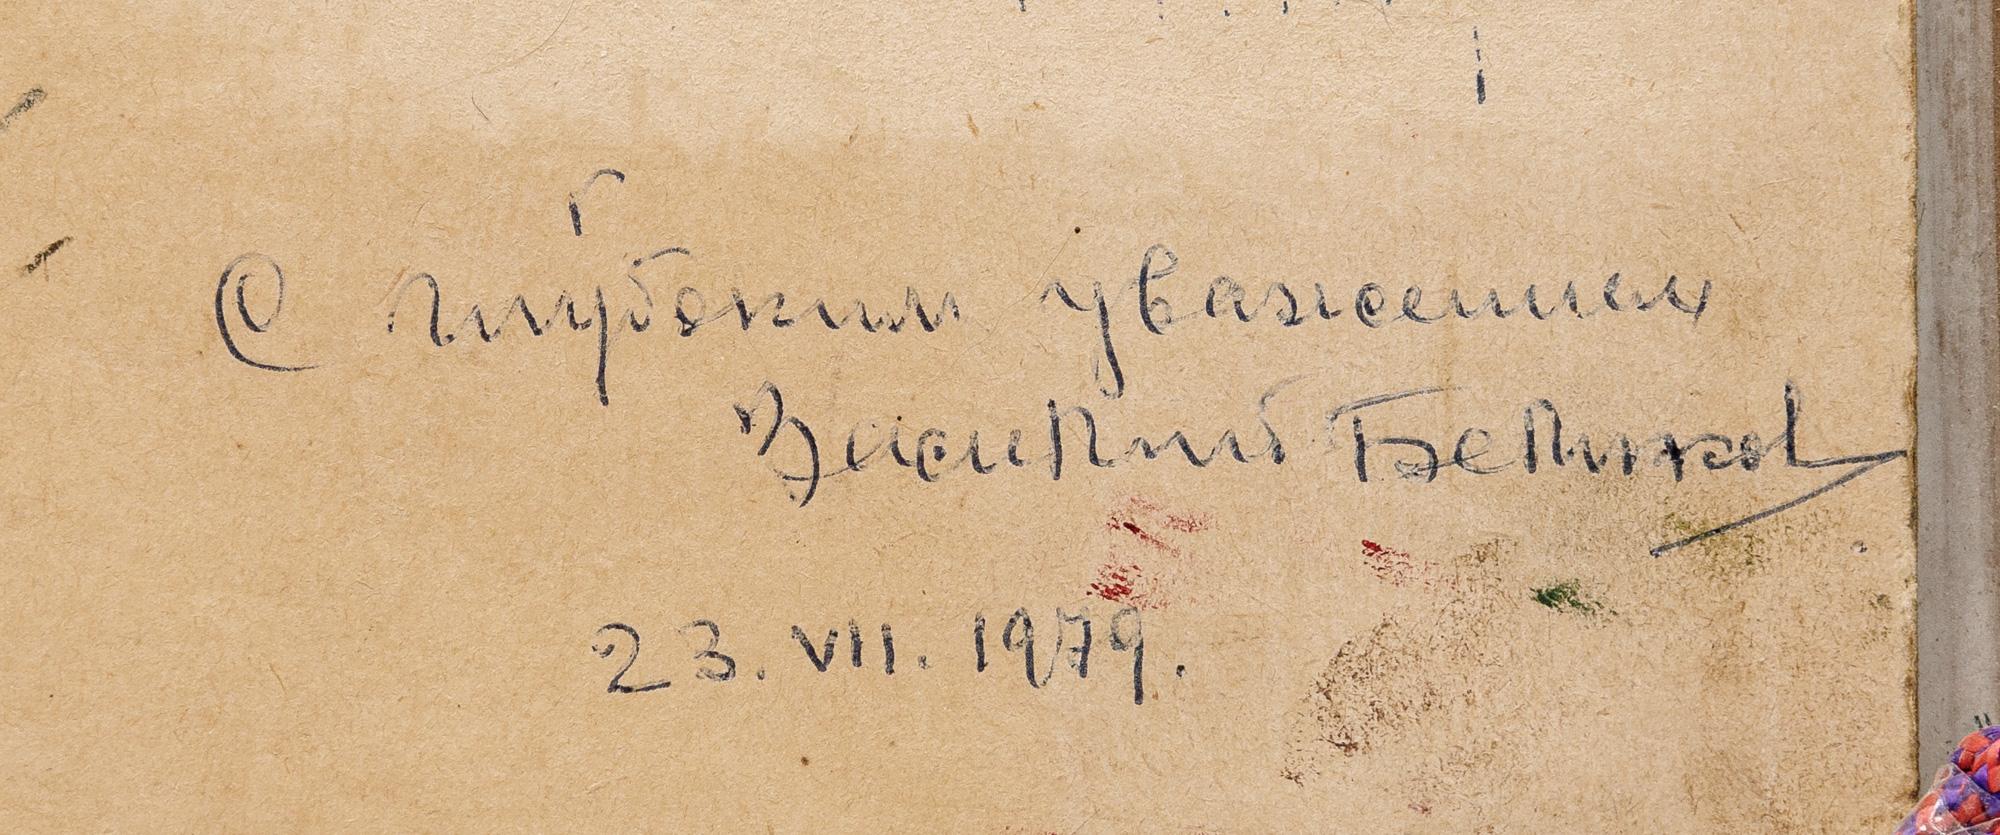 С глубоким уважением
Василий Беликов
23.VII.1979.